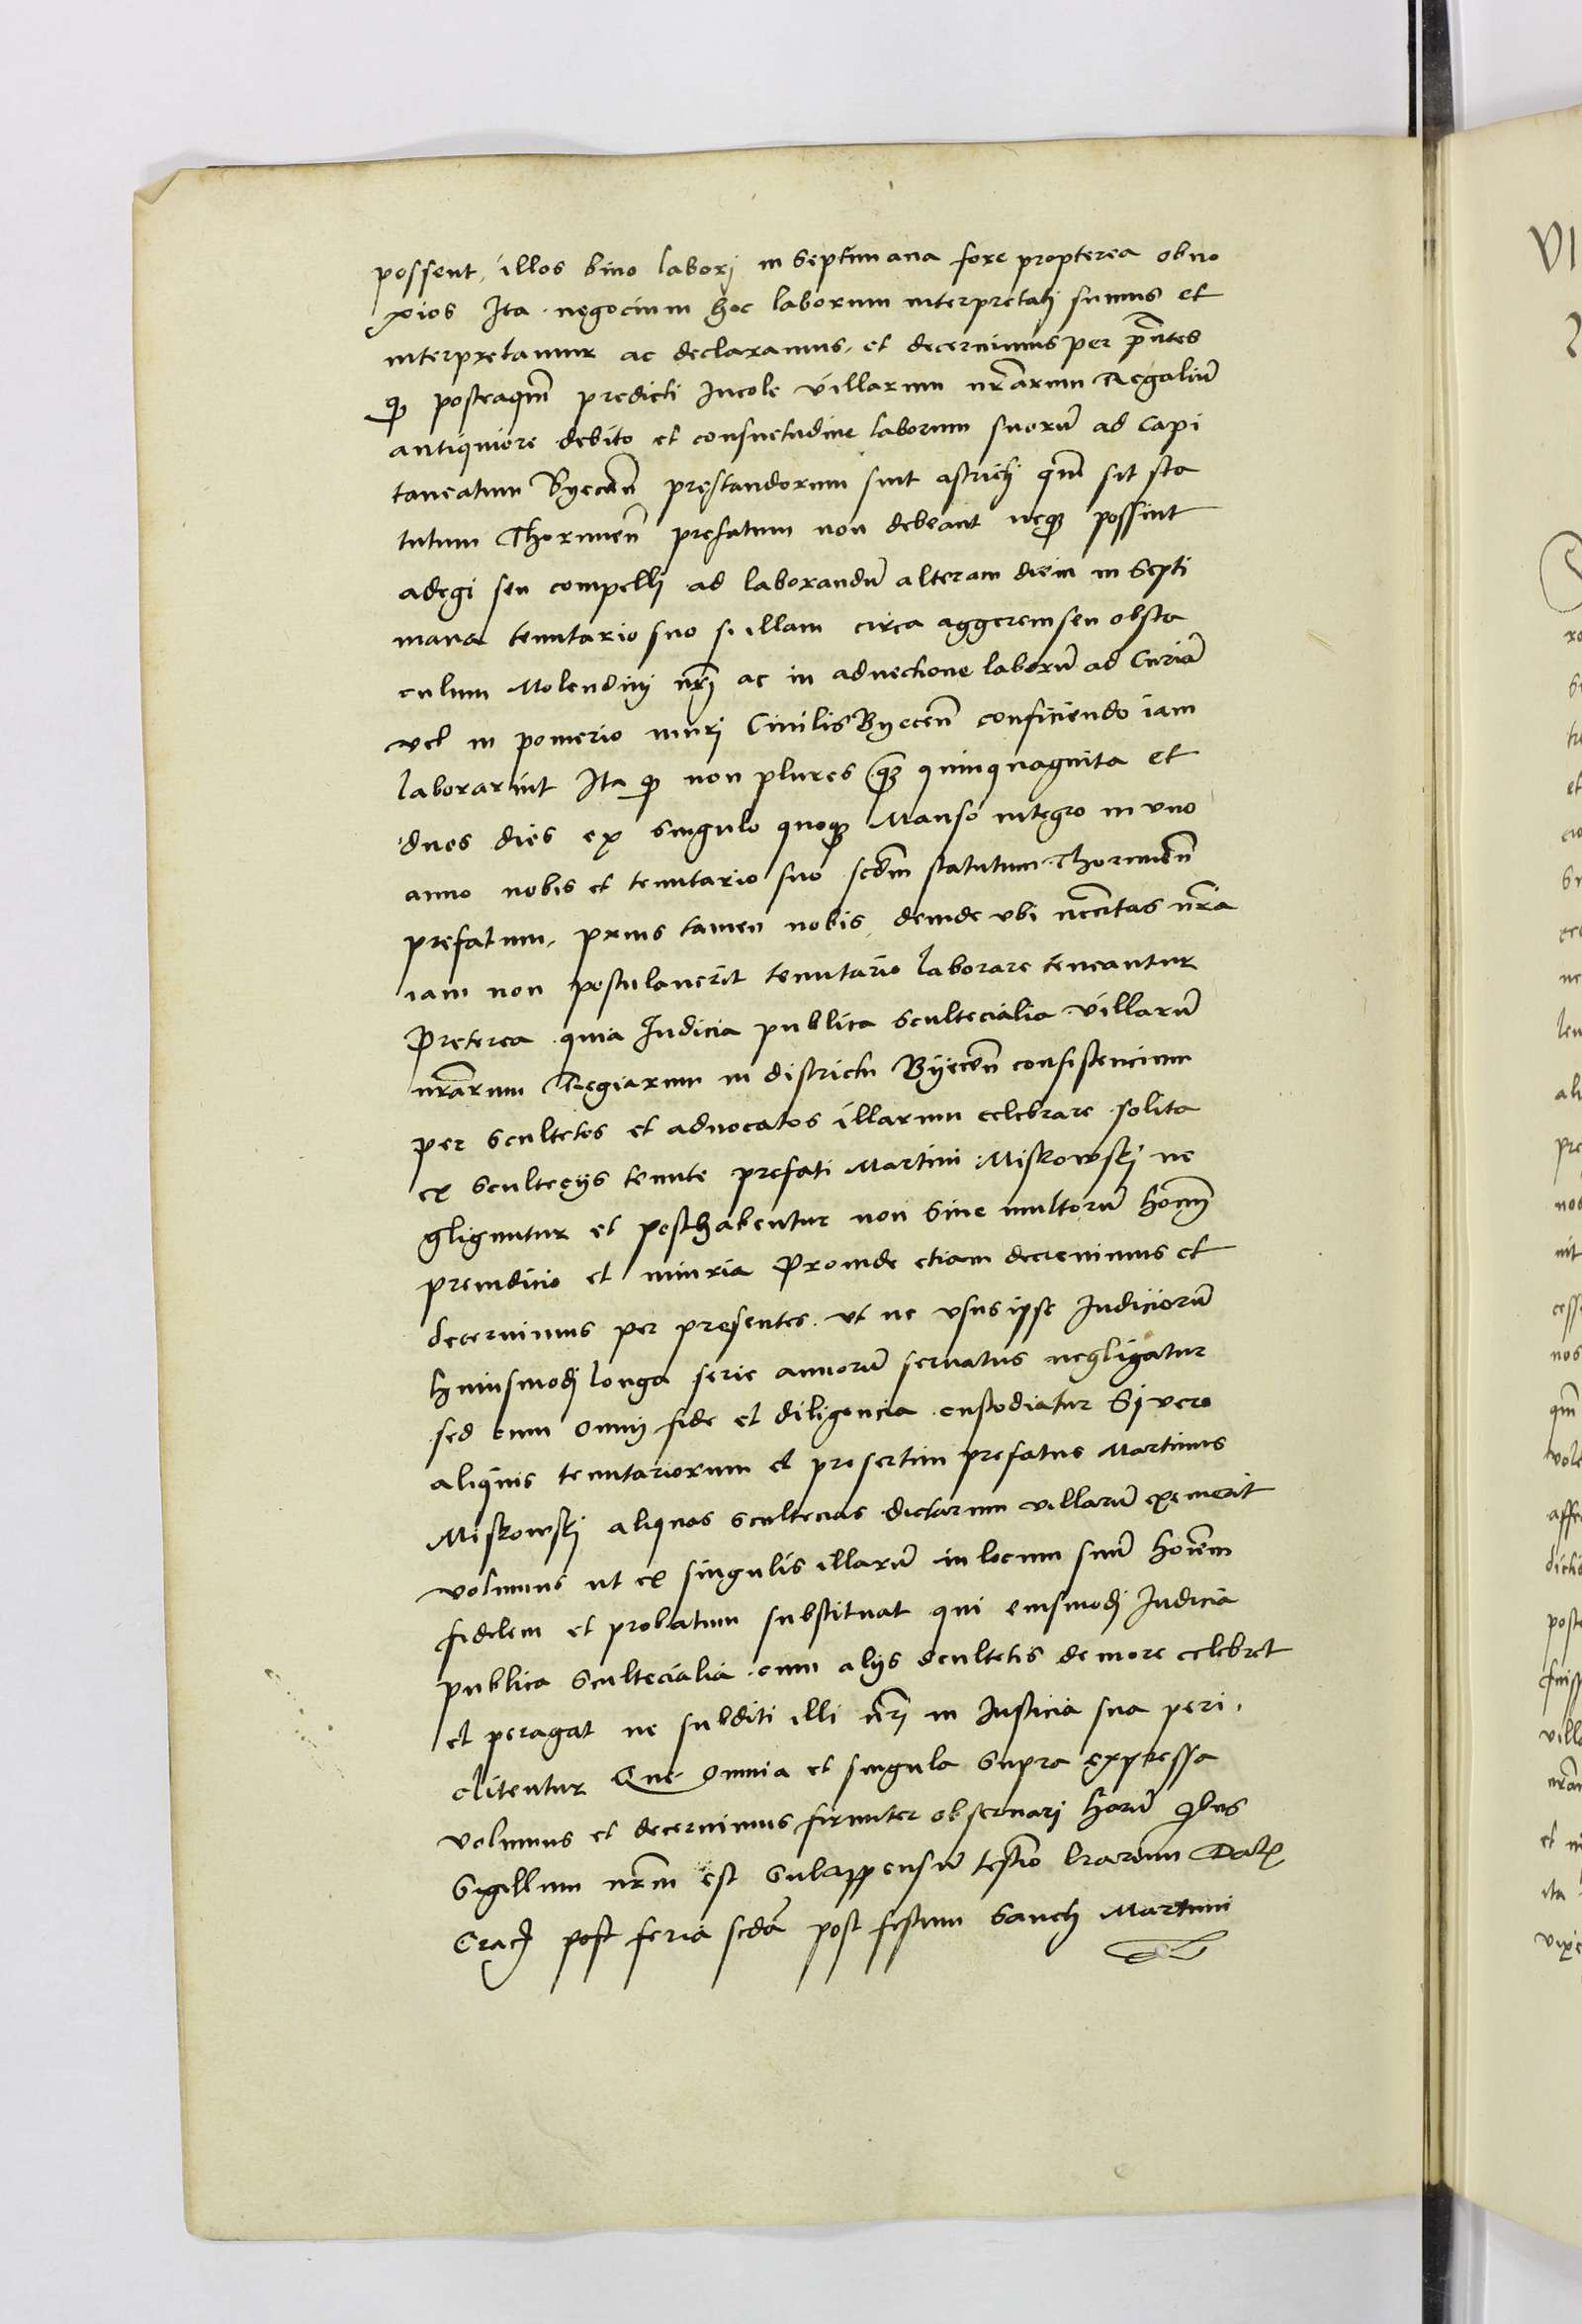 possent, illos bino laborj in septimana fore propterea obno
xios Ita negocium hoc laborum interpretatj sumus et
interpretamur ac declaramus, et decernimus per p̄ntes
qȝ posteaqm̄ predicti Incole villarum nr̄arum Regaliū
antiquiore debito et consuetudine laborum suorū ad Capi
taneatum Byecen̄ prestandorum sint astrictj qm̄ sit sta
tutum Thorunen̄ prefatum non debeant neqȝ possint
adigi seu compellj ad laborandū alteram diem in septi
mana tenutario suo si illam circa aggerem seu obsta
culum Molendinj nrī ac in aduectione laborū ad Curiā
vel in pomerio murj Ciuilis Byecen̄ conficiendo iam
laborarint Ita qȝ non plures qȝ quinquaginta et
duos dies ex singulo quoqȝ Manso integro in vno
anno nobis et tenutario suo scdm̄ statutum Thorunen̄
prefatum, prius tamen nobis, deinde vbi nccītas nr̄a
iam non postulauerit tenutario laborare teneantur
Preterea quia Iudicia publica scultecialia villarū
nr̄arum Regiarum in districtu Byecen̄ consistencium
per scultetos et aduocatos illarum celebrare solita
ex scultecijs tenute prefati Martini Miskowskj ne
gliguntur et posthabentur non sine multorū hoīm
preiudicio et iniuria Proinde etiam decreuimus et
decernimus per presentes vt ne vsus ipse Iudiciorū
huiusmodj longa serie annorū seruatus negligatur
sed cum omnj fide et diligencia custodiatur Sj vero
aliquis tenutariorum et presertim prefatus Martinus
Miskowskj aliquas scultecias dictarum villarū exemerit
volumus ut ex singulis illarū in locum suū hoīem
fidelem et probatum substituat qui eiusmodj Iudicia
publica scultecialia cum alijs scultetis de more celebret
et peragat ne subditi illi nrī in Iusticia sua peri,
clitentur Que omnia et singula supra expressa
volumus et decernimus firmiter obseruarj harū qbus
Sigillum nrm̄ est subappensū testīo lr̄arum Datȝ
Cracȝ post feria scdā post festum Sanctj Martini